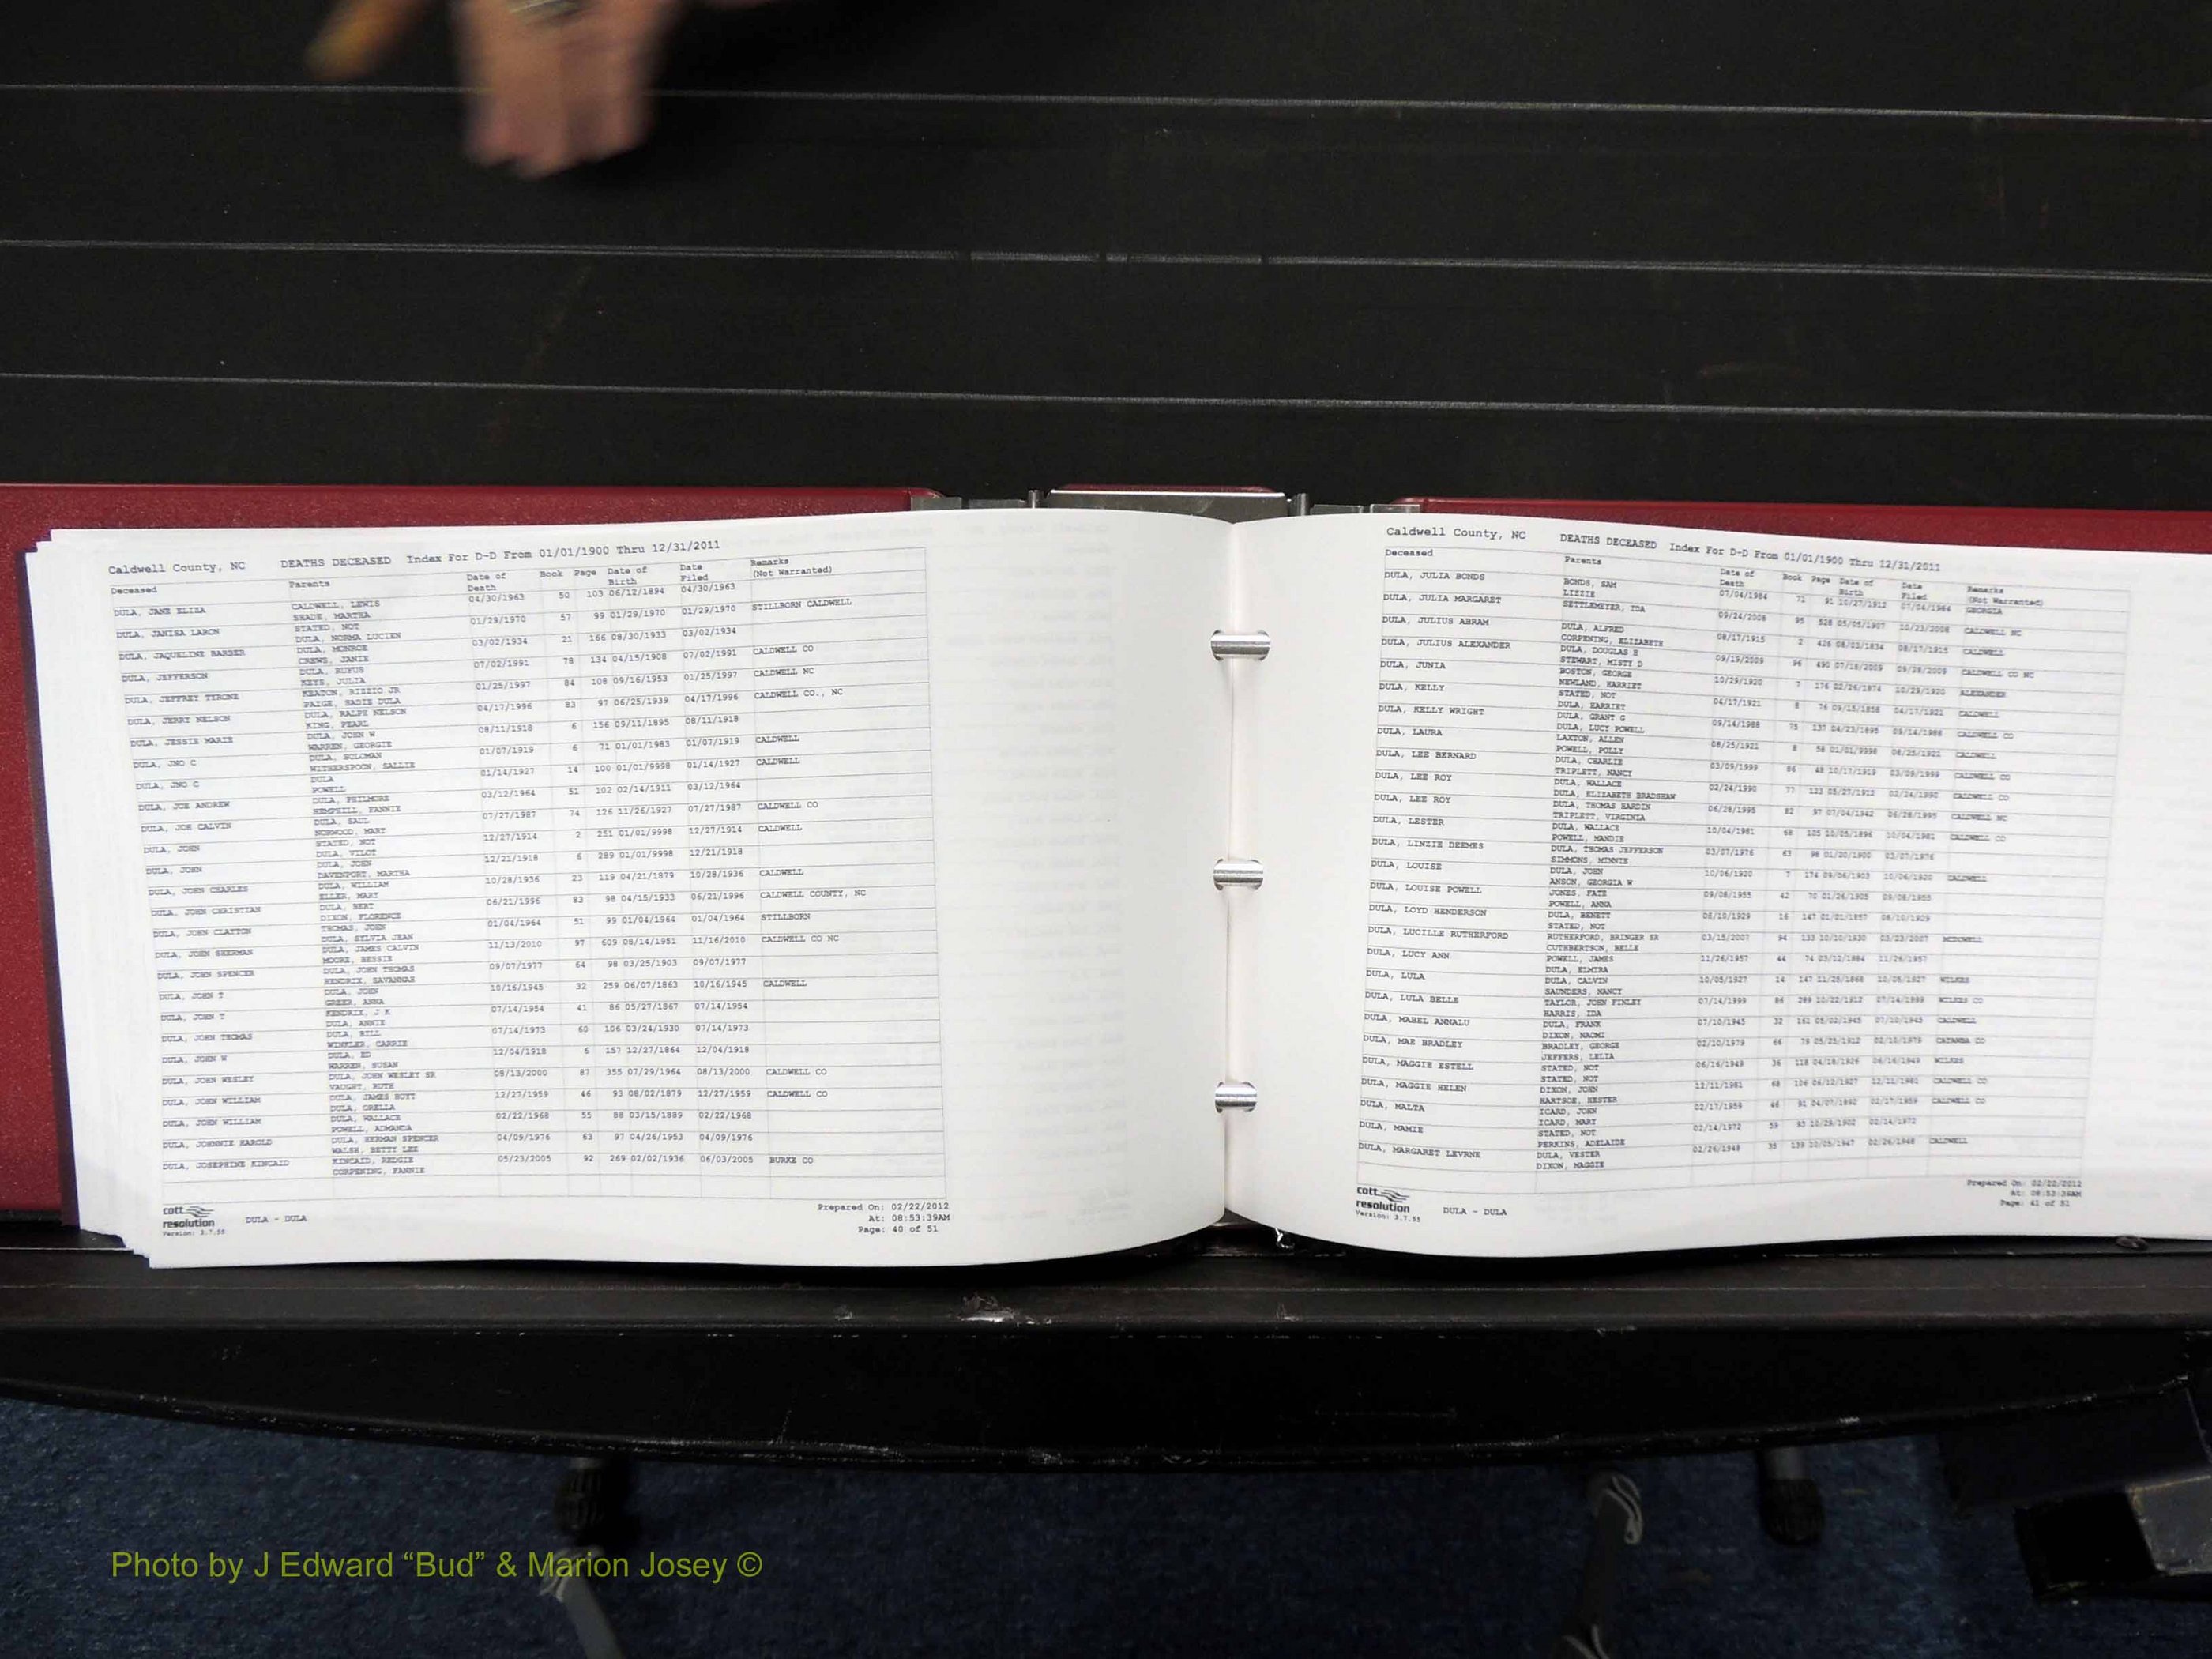 Caldwell County, NC DEATHS DECEASED Index For D-D From 01/01/1900 Thru 12/31/2011
Deceased Parents Date of Death Book Page Date of Birth Date Filed Remarks (Not Warranted)
DULA, JANE ELIZA CALDWELL, LEWIS 04/30/1963 50 103 06/12/1894 04/30/1963
SHADE, MARTHA
DULA, JANISA LARON STATED, NOT 01/29/1970 57 99 01/29/1970 01/29/1970 STILLBORN CALDWELL
DULA, NORMA LUCIEN
DULA, JAQUELINE BARBER DULA, MONROE 03/02/1934 21 166 08/30/1933 03/02/1934
CREWS, JANIE
DULA, JEFFERSON DULA, RUFUS 07/02/1991 78 134 04/15/1908 07/02/1991 CALDWELL CO
KEYS, JULIA
DULA, JEFFREY TYRONE KEATON, RIZZIO JR 01/25/1997 84 108 09/16/1953 01/25/1997 CALDWELL NC
PAIGE, SADIE DULA
DULA, JERRY NELSON DULA, RALPH NELSON 04/17/1996 83 97 06/25/1939 04/17/1996 CALDWELL CO., NC
KING, PEARL
DULA, JESSIE MARIE DULA, JOHN W 08/11/1918 6 156 09/11/1895 08/11/1918
WARREN, GEORGIE
DULA, JNO C DULA, SOLOMAN 01/07/1919 6 71 01/01/1983 01/07/1919 CALDWELL
WITHERSPOON, SALLIE
DULA, JNO C DULA 01/14/1927 14 100 01/01/9998 01/14/1927 CALDWELL
POWELL
DULA, JOE ANDREW DULA, PHILMORE 03/12/1964 51 102 02/14/1911 03/12/1964
HEMPHILL, FANNIE
DULA, JOE CALVIN DULA, SAUL 07/27/1987 74 126 11/26/1927 07/27/1987 CALDWELL CO
NORWOOD, MARY
DULA, JOHN STATED, NOT 12/27/1914 2 251 01/01/9998 12/27/1914 CALDWELL
DULA, VILOT
DULA, JOHN DULA, JOHN 12/21/1918 6 289 01/01/9998 12/21/1918
DAVENPORT, MARTHA
DULA, JOHN CHARLES DULA, WILLIAM 10/28/1936 23 119 04/21/1879 10/28/1936 CALDWELL
ELLER, MARY
DULA, JOHN CHRISTIAN DULA, BERT 06/21/1996 83 98 04/15/1933 06/21/1996 CALDWELL COUNTY, NC
DIXON, FLORENCE
DULA, JOHN CLAYTON THOMAS, JOHN 01/04/1964 51 99 01/04/1964 01/04/1964 STILLBORN
DULA, SYLVIA JEAN
DULA, JOHN SHERMAN DULA, JAMES CALVIN 11/13/2010 97 609 08/14/1951 11/16/2010 CALDWELL CO NC
MOORE, BESSIE
DULA, JOHN SPENCER DULA, JOHN THOMAS 09/07/1977 64 98 03/25/1903 09/07/1977
HENDRIX, SAVANNAH
DULA, JOHN T DULA, JOHN 10/16/1945 32 259 06/07/1863 10/16/1945 CALDWELL
GREER, ANNA
DULA, JOHN T KENDRIX, J K 07/14/1954 41 86 05/27/1867 07/14/1954
DULA, ANNIE
DULA, JOHN THOMAS DULA, BILL 07/14/1973 60 106 03/24/1930 07/14/1973
WINKLER, CARRIE
DULA, JOHN W DULA, ED 12/04/1918 6 157 12/27/1864 12/04/1918
WARREN, SUSAN
DULA, JOHN WESLEY DULA, JOHN WESLEY SR 08/13/2000 87 355 07/29/1964 08/13/2000 CALDWELL CO
VAUGHT, RUTH
DULA, JOHN WILLIAM DULA, JAMES HOYT 12/27/1959 46 93 08/02/1879 12/27/1959 CALDWELL CO
DULA, ORELLA
DULA, JOHN WILLIAM DULA, WALLACE 02/22/1968 55 88 03/15/1889 02/22/1968
POWELL, ADMANDA
DULA, JOHNNIE HAROLD DULA, HERMAN SPENCER 04/09/1976 63 97 04/26/1953 04/09/1976
WALSH, BETTY LEE
DULA, JOSEPHINE KINCAID KINCAID, REDGIE 05/23/2005 92 269 02/02/1936 06/03/2005 BURKE CO
CORPENING, FANNIE
cott
resolution
Version: 3.7.55
DULA - DULA
Prepared On: 02/22/2012
At: 08:53:39AM
Page: 40 of 51
Caldwell County, NC DEATHS DECEASED Index For D-D From 01/01/1900 Thru 12/31/2011
Deceased Parents Date of Death Book Page Date of Birth Date Filed Remarks (Not Warranted)
DULA, JULIA BONDS BONDS, SAM 07/04/1984 71 91 10/27/1912 07/04/1984 GEORGIA
LIZZIE
DULA, JULIA MARGARET SETTLEMEYER, IDA 09/24/2008 95 528 05/05/1907 10/23/2008 CALDWELL NC
DULA, JULIUS ABRAM DULA, ALFRED 08/17/1915 2 426 08/03/1834 08/17/1915 CALDWELL
CORPENING, ELIZABETH
DULA, JULIUS ALEXANDER DULA, DOUGLAS H 09/19/2009 96 490 07/18/2009 09/28/2009 CALDWELL CO NC
STEWART, MISTY D
DULA, JUNIA BOSTON, GEORGE 10/29/1920 7 176 02/26/1874 10/29/1920 ALEXANDER
NEWLAND, HARRIET
DULA, KELLY STATED, NOT 04/17/1921 8 76 09/15/1858 04/17/1921 CALDWELL
DULA, HARRIET
DULA, KELLY WRIGHT DULA, GRANT G 09/14/1988 75 137 04/23/1895 09/14/1988 CALDWELL CO
DULA, LUCY POWELL
DULA, LAURA LAXTON, ALLEN 08/25/1921 8 58 01/01/9998 08/25/1921 CALDWELL
POWELL, POLLY
DULA, LEE BERNARD DULA, CHARLIE 03/09/1999 86 48 10/17/1919 03/09/1999 CALDWELL CO
TRIPLETT, NANCY
DULA, LEE ROY DULA, WALLACE 02/24/1990 77 123 05/27/1912 02/24/1990 CALDWELL CO
DULA, ELIZABETH BRADSHAW
DULA, LEE ROY DULA, THOMAS HARDIN 06/28/1995 82 97 07/04/1942 06/28/1995 CALDWELL NC
TRIPLETT, VIRGINIA
DULA, LESTER DULA, WALLACE 10/04/1981 68 105 10/05/1896 10/04/1981 CALDWELL CO
POWELL, MANDIE
DULA, LINZIE DEEMES DULA, THOMAS JEFFERSON 03/07/1976 63 98 01/20/1900 03/07/1976
SIMMONS, MINNIE
DULA, LOUISE DULA, JOHN 10/06/1920 7 174 09/06/1903 10/06/1920 CALDWELL
ANSON, GEORGIA W
DULA, LOUISE POWELL JONES, FATE 09/08/1955 42 70 01/26/1905 09/08/1955
POWELL, ANNA
DULA, LOYD HENDERSON DULA, BENETT 08/10/1929 16 147 01/01/1857 08/10/1929
STATED, NOT
DULA, LUCILLE RUTHERFORD RUTHERFORD, BRINGER SR 03/15/2007 94 133 10/10/1930 03/23/2007 MCDOWELL
CUTHBERTSON, BELLE
DULA, LUCY ANN POWELL, JAMES 11/26/1957 44 74 03/12/1884 11/26/1957
DULA, ELMIRA
DULA, LULA DULA, CALVIN 10/05/1927 14 147 11/25/1868 10/05/1927 WILKES
SAUNDERS, NANCY
DULA, LULA BELLE TAYLOR, JOHN FINLEY 07/14/1999 86 289 10/22/1912 07/14/1999 WILKES CO
HARRIS, IDA
DULA, MABEL ANNALU DULA, FRANK 07/10/1945 32 161 05/02/1945 07/10/1945 CALDWELL
DIXON, NAOMI
DULA, MAE BRADLEY BRADLEY, GEORGE 02/10/1979 66 79 05/25/1912 02/10/1979 CATAWBA CO
JEFFERS, LELIA
DULA, MAGGIE ESTELL STATED, NOT 06/16/1949 36 118 04/18/1926 06/16/1949 WILKES
STATED, NOT
DULA, MAGGIE HELEN DIXON, JOHN 12/11/1981 68 106 06/12/1927 12/11/1981 CALDWELL CO
HARTSOE, HESTER
DULA, MALTA ICARD, JOHN 02/17/1959 46 91 04/07/1892 02/17/1959 CALDWELL CO
ICARD, MARY
DULA, MAMIE STATED, NOT 02/14/1972 59 93 10/29/1902 02/14/1972
PERKINS, ADELAIDE
DULA, MARGARET LEVRNE DULA, VESTER 02/26/1948 35 139 10/05/1947 02/26/1948 CALDWELL
DIXON, MAGGIE
cott
resolution
Version: 3.7.55
DULA - DULA
Prepared On: 02/22/2012
At: 08:53:39AM
Page: 41 of 51
Photo by J Edward “Bud” & Marion Josey ©